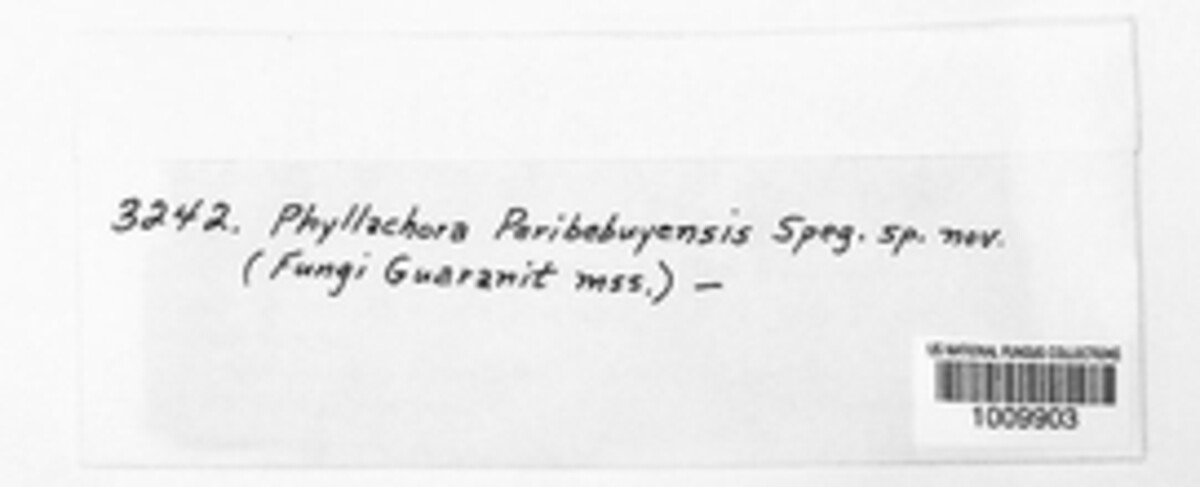 3242. Phyllachora Peribebuyensis Speg. sp. nov.
(Fungi Guaranit mss.) —
US NATIONAL FUNGUS COLLECTIONS
1009903